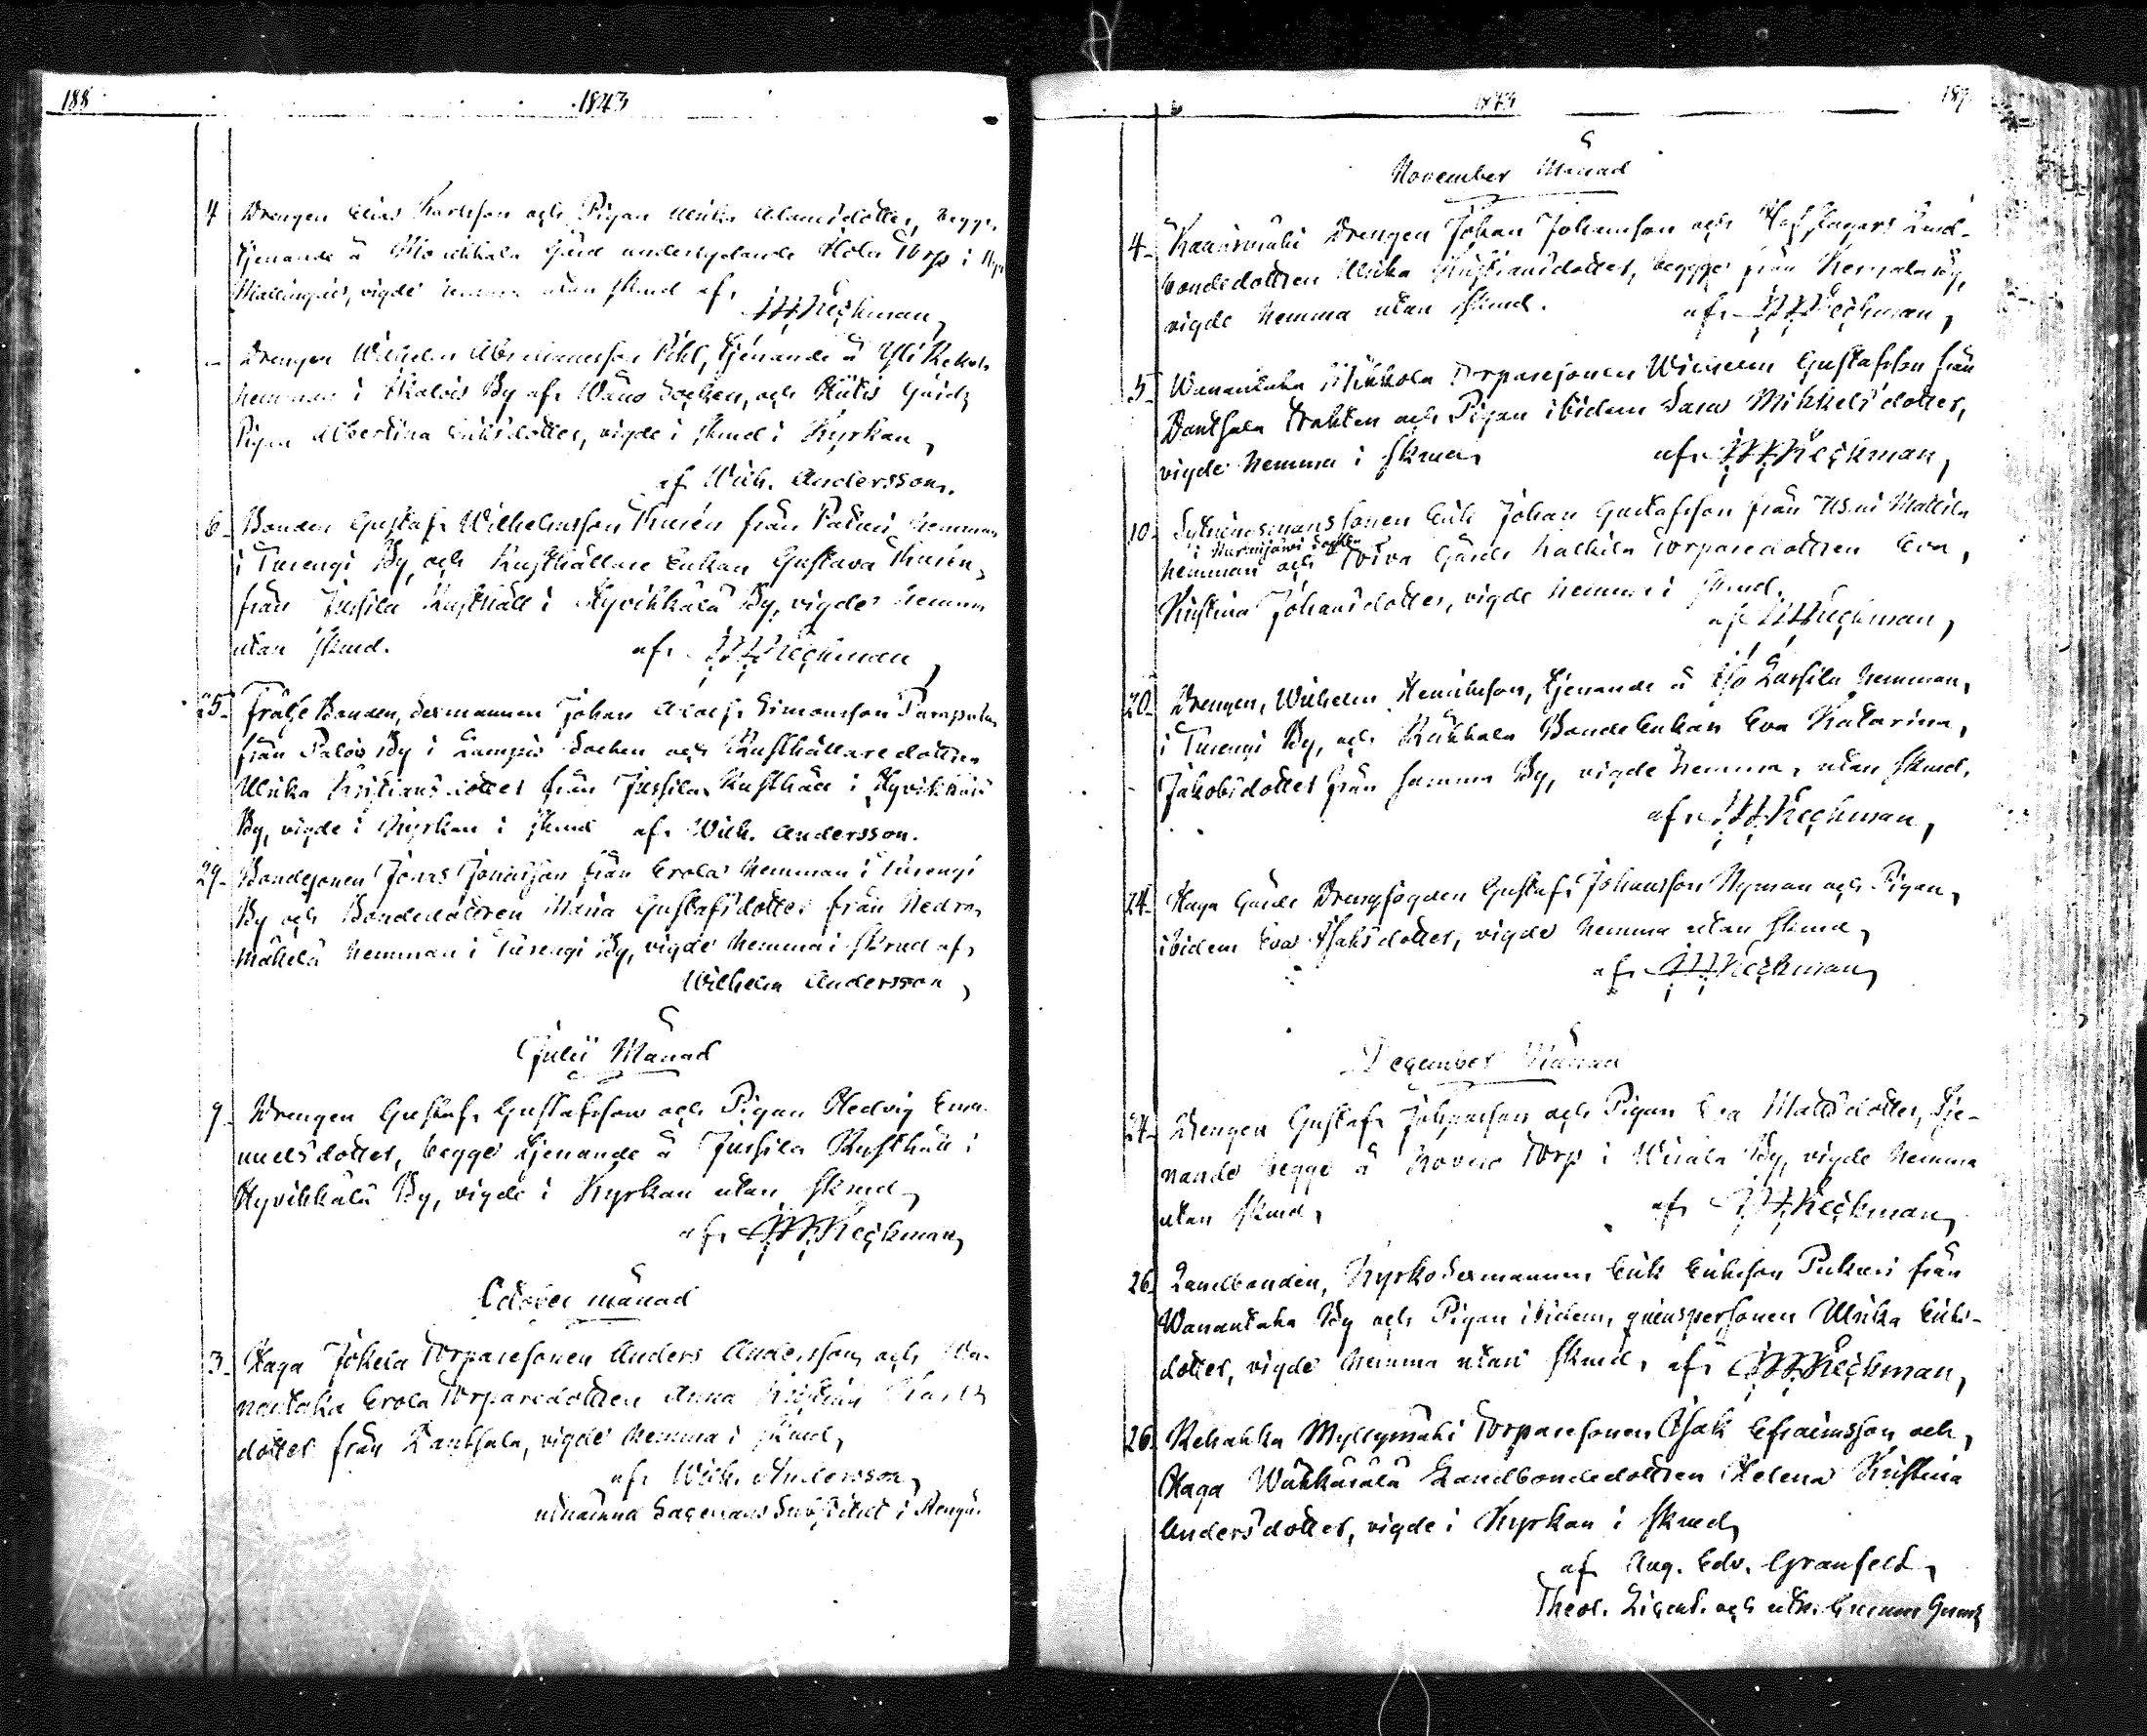 188
1843
4 Drengen Elias Karlsson och Pigan Ulrika Adamsdotter, begge,
tjenande å Moickala Gård underlydande Hola Torp i
Mallinges, vigde hemma utan skrud af,
W Heckman,
Drengen Wilhelm Abrahamsson Pihl, tjenande å Yli Rekola
hemman i Skalois By af Wånå Socken, och Hütis Gårds
Pigan Albertina Eriksdotter, vigde i skrud i Kyrkan,
af Wilh. Andersson.
6 Bonden Gustaf Wilhelmsson Thurén från hemman
i Turengi By, och Rusthållare Enkan Gustava Thurén,
från Jussila Rusthåll i Hyvikkälä By, vigde hemma
utan skrud. af W Heckman,
25 Frälse Bonden, Sexmannen Johan Adolf Simonsson
från Palois By i Lampis Socken och Rusthållaredottren
Ulrika Kristiansdotter från Jussila Rusthåll i Hyvikkälä
By, vigde i Kyrkan i skrud af Wilh. Andersson.
29 Bondesonen Jonas Jonasson från Erola hemman i Turengi
By och Bondedottren Maria Gustafsdotter från Nedre,
Mäkelä hemman i Turengi By, vigde hemma i skrud af,
Wilhelm Andersson,
Julii Månad
9 Drengen Gustaf Gustafsson och Pigan Hedvig Ema-
nuelsdotter, begge tjenande å Jussila Rusthåll i
Hyvikkälä By, vigde i Kyrkan utan skrud,
af W Heckman,
October månad
3 Haga Jokela Torparesonen Anders Andersson, och Wa-
nantaka Erola Torparedottren Anna Kristina
dotter från Danthala, vigde hemma i skrud,
af Wilh. Andersson,
utnämnd Sacellans Substitut i
1843
189
November Månad
4 Drengen Johan Johansson och Land-
bondedottren Ulrika Kristiansdotter, begge från Kernala By,
vigde hemma utan skrud. af W Heckman,
5 Wanantaka Mikkola Torparesonen Wilhelm Gustafsson från
Danthala trakten och Pigan ibidem Sara Mikkelsdotter,
vigde hemma i skrud, af W Heckman,
10 Sytningsmanssonen Erik Johan Gustafsson från Uoni Mattila
i Nurmijärvi Socken
hemman och Toiva Gårds Kalkila Torparedottren Eva,
Kristina Johansdotter, vigde hemma i skrud.
af W Heckman,
20 Drengen, Wilhelm Henriksson, tjenande å Iso Lassila hemman,
i Turengi By, och Rükkala BondeEnkan Eva Katarina,
Jakobsdotter från samma By, vigde hemma, utan skrud.
af W Heckman,
24 Haga Gårds Drengfogden Gustaf Johansson Nyman och Pigan,
ibidem Eva Isaksdotter, vigde hemma utan skrud,
af W Heckman,
December Månad
24 Drengen Gustaf Johansson och Pigan Eva Mattsdotter, tje-
nande begge å Torp i Wirala By, vigde hemma
utan skrud, af W Heckman,
26 Landbonden, Kyrkosexmannen Erik Eriksson Pukari från
Wanantaka By och Pigan ibidem, qvinspersonen Ulrika Eriks-
dotter, vigde hemma utan skrud, af W Heckman,
26 Rehakka Myllymäki Torparesonen Isak Efraimsson och,
Haga Wähkärälä Landbondedottren Helena Kristina
Andersdotter, vigde i Kyrkan i skrud,
af Aug. Edv. Granfelt,
Theol. Licent. och